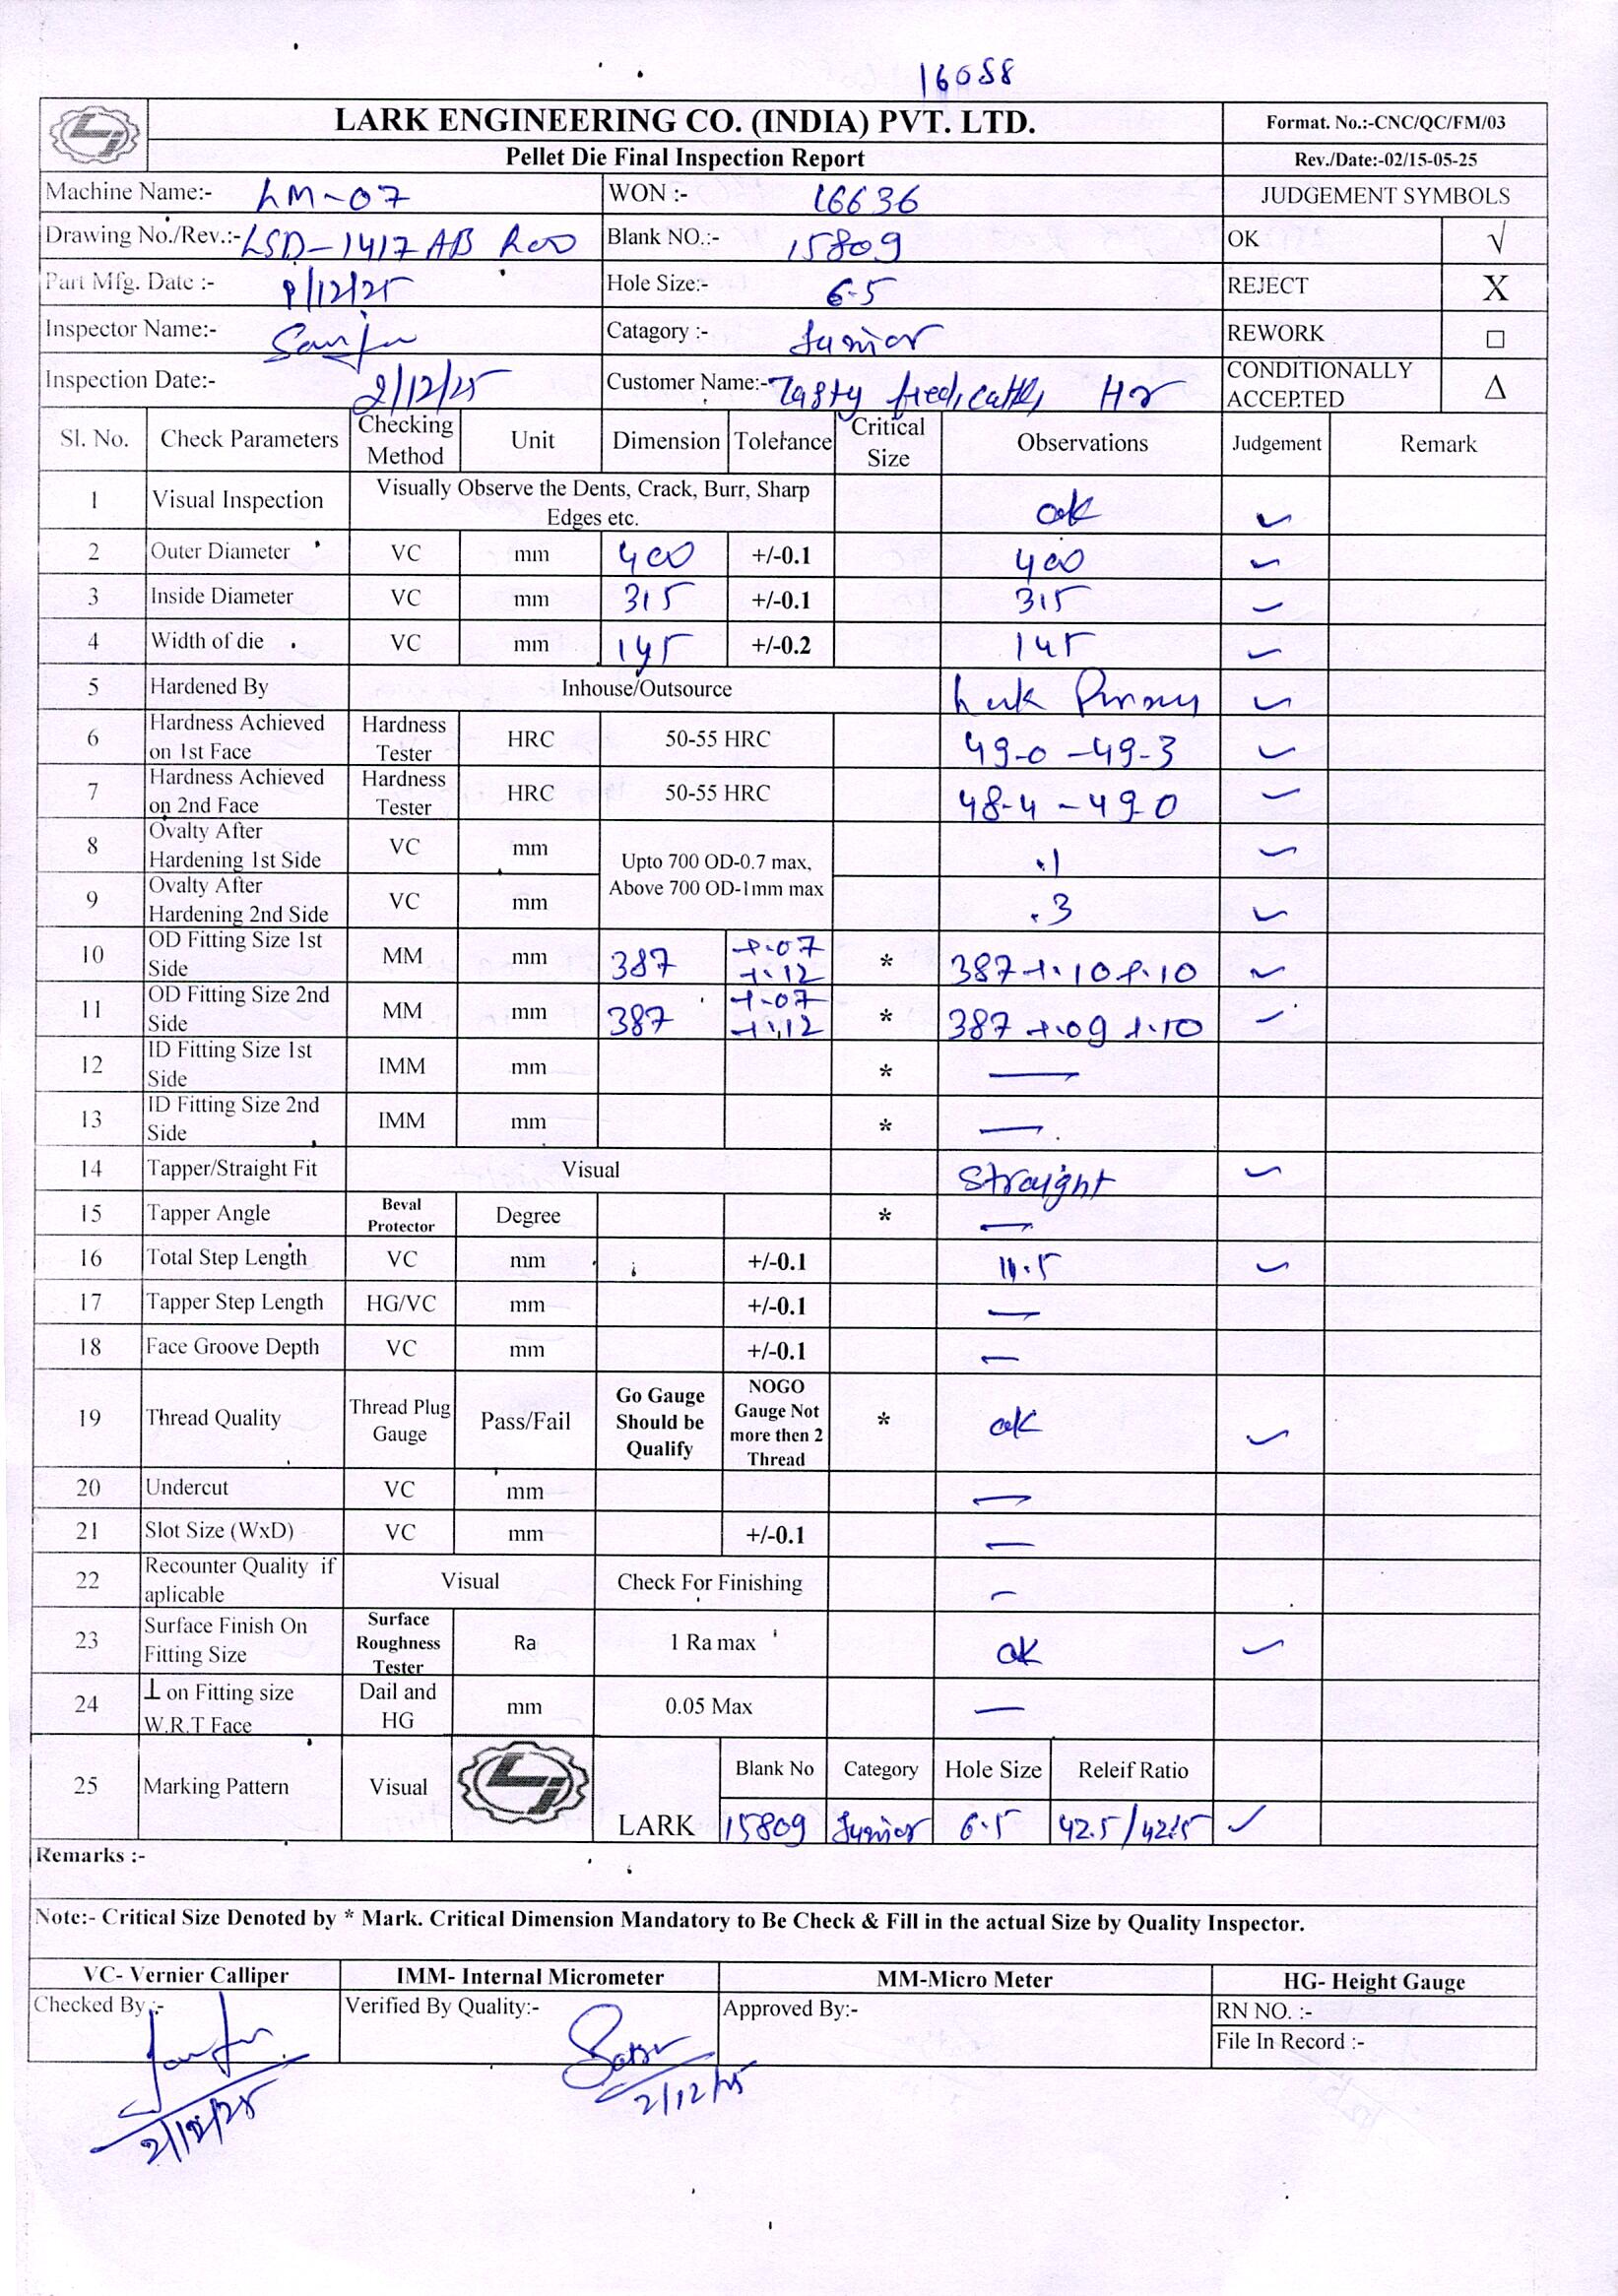 16088
LARK ENGINEERING CO. (INDIA) PVT. LTD.
Format. No.:-CNC/QC/FM/03
Pellet Die Final Inspection Report
Rev./Date:-02/15-05-25
Machine Name:- LM-07 WON :- 16636 JUDGEMENT SYMBOLS
Drawing No./Rev.:- LSD-1417 AB R00 Blank NO.:- 15809 OK √
Part Mfg. Date :- /12/25 Hole Size:- 6.5 REJECT X
Inspector Name:- Catagory :- Junior REWORK □
Inspection Date:- 2/12/25 Customer Name:- Tasty feed, cattle, CONDITIONALLY ACCEPTED Δ
Sl. No. Check Parameters Checking Method Unit Dimension Tolerance Critical Size Observations Judgement Remark
1 Visual Inspection Visually Observe the Dents, Crack, Burr, Sharp Edges etc. ok ✓
2 Outer Diameter VC mm 400 +/-0.1 400 ✓
3 Inside Diameter VC mm 315 +/-0.1 315 ✓
4 Width of die VC mm 145 +/-0.2 145 ✓
5 Hardened By Inhouse/Outsource ✓
6 Hardness Achieved on 1st Face Hardness Tester HRC 50-55 HRC 49-0 - 49-3 ✓
7 Hardness Achieved on 2nd Face Hardness Tester HRC 50-55 HRC 48-4 - 49-0 ✓
8 Ovalty After Hardening 1st Side VC mm Upto 700 OD-0.7 max, Above 700 OD-1mm max .1 ✓
9 Ovalty After Hardening 2nd Side VC mm .3 ✓
10 OD Fitting Size 1st Side MM mm 387 +.07 +.12 * 387 +.10 +.10 ✓
11 OD Fitting Size 2nd Side MM mm 387 +.07 +.12 * 387 +.09 +.10 ✓
12 ID Fitting Size 1st Side IMM mm * —
13 ID Fitting Size 2nd Side IMM mm * —
14 Tapper/Straight Fit Visual Straight ✓
15 Tapper Angle Beval Protector Degree * —
16 Total Step Length VC mm +/-0.1 11.5 ✓
17 Tapper Step Length HG/VC mm +/-0.1 —
18 Face Groove Depth VC mm +/-0.1 —
19 Thread Quality Thread Plug Gauge Pass/Fail Go Gauge Should be Qualify NOGO Gauge Not more then 2 Thread * ok ✓
20 Undercut VC mm —
21 Slot Size (WxD) VC mm +/-0.1 —
22 Recounter Quality if aplicable Visual Check For Finishing —
23 Surface Finish On Fitting Size Surface Roughness Tester Ra 1 Ra max ok ✓
24 ⊥ on Fitting size W.R.T Face Dail and HG mm 0.05 Max —
25 Marking Pattern Visual LARK Blank No Category Hole Size Releif Ratio
15809 Junior 6.5 42.5/42.5 ✓
Remarks :-
Note:- Critical Size Denoted by * Mark. Critical Dimension Mandatory to Be Check & Fill in the actual Size by Quality Inspector.
VC- Vernier Calliper IMM- Internal Micrometer MM-Micro Meter HG- Height Gauge
Checked By :- Verified By Quality:- Approved By:- RN NO. :-
File In Record :-
2/12/25 2/12/25